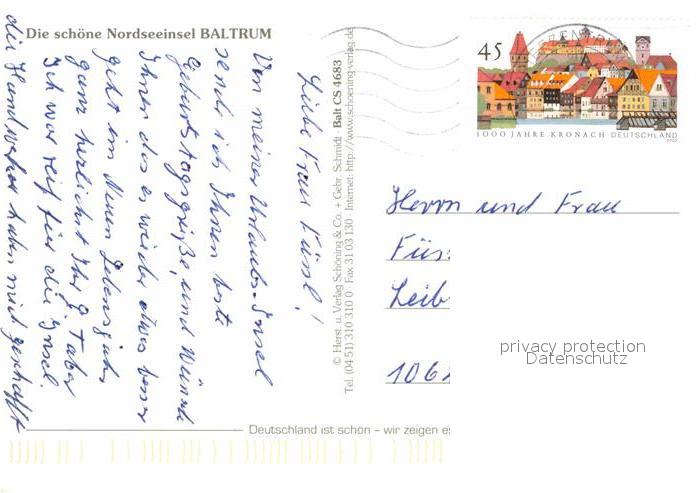 Die schöne Nordseeinsel BALTRUM
Liebe Frau Füssl!
Von meiner Urlaubs-Insel
sende ich Ihnen beste
Geburtstagsgrüße, und Wünsche
Ihnen das es wieder etwas besser
geht im Neuen Lebensjahr
ganz herlichst Ihr
Ich war reif für die Insel.
die Handwerker haben mich geschafft
© Herst. u. Verlag Schöning & Co. + Gebr. Schmidt · Balt CS 4683
Tel. (04 51) 310 310 0 · Fax 31 03 130 · Internet: http://www.schoening-verlag.de
Deutschland ist schön – wir zeigen es
45
1000 JAHRE KRONACH DEUTSCHLAND
Herrn und Frau
Füs
Leib
106
privacy protection
Datenschutz